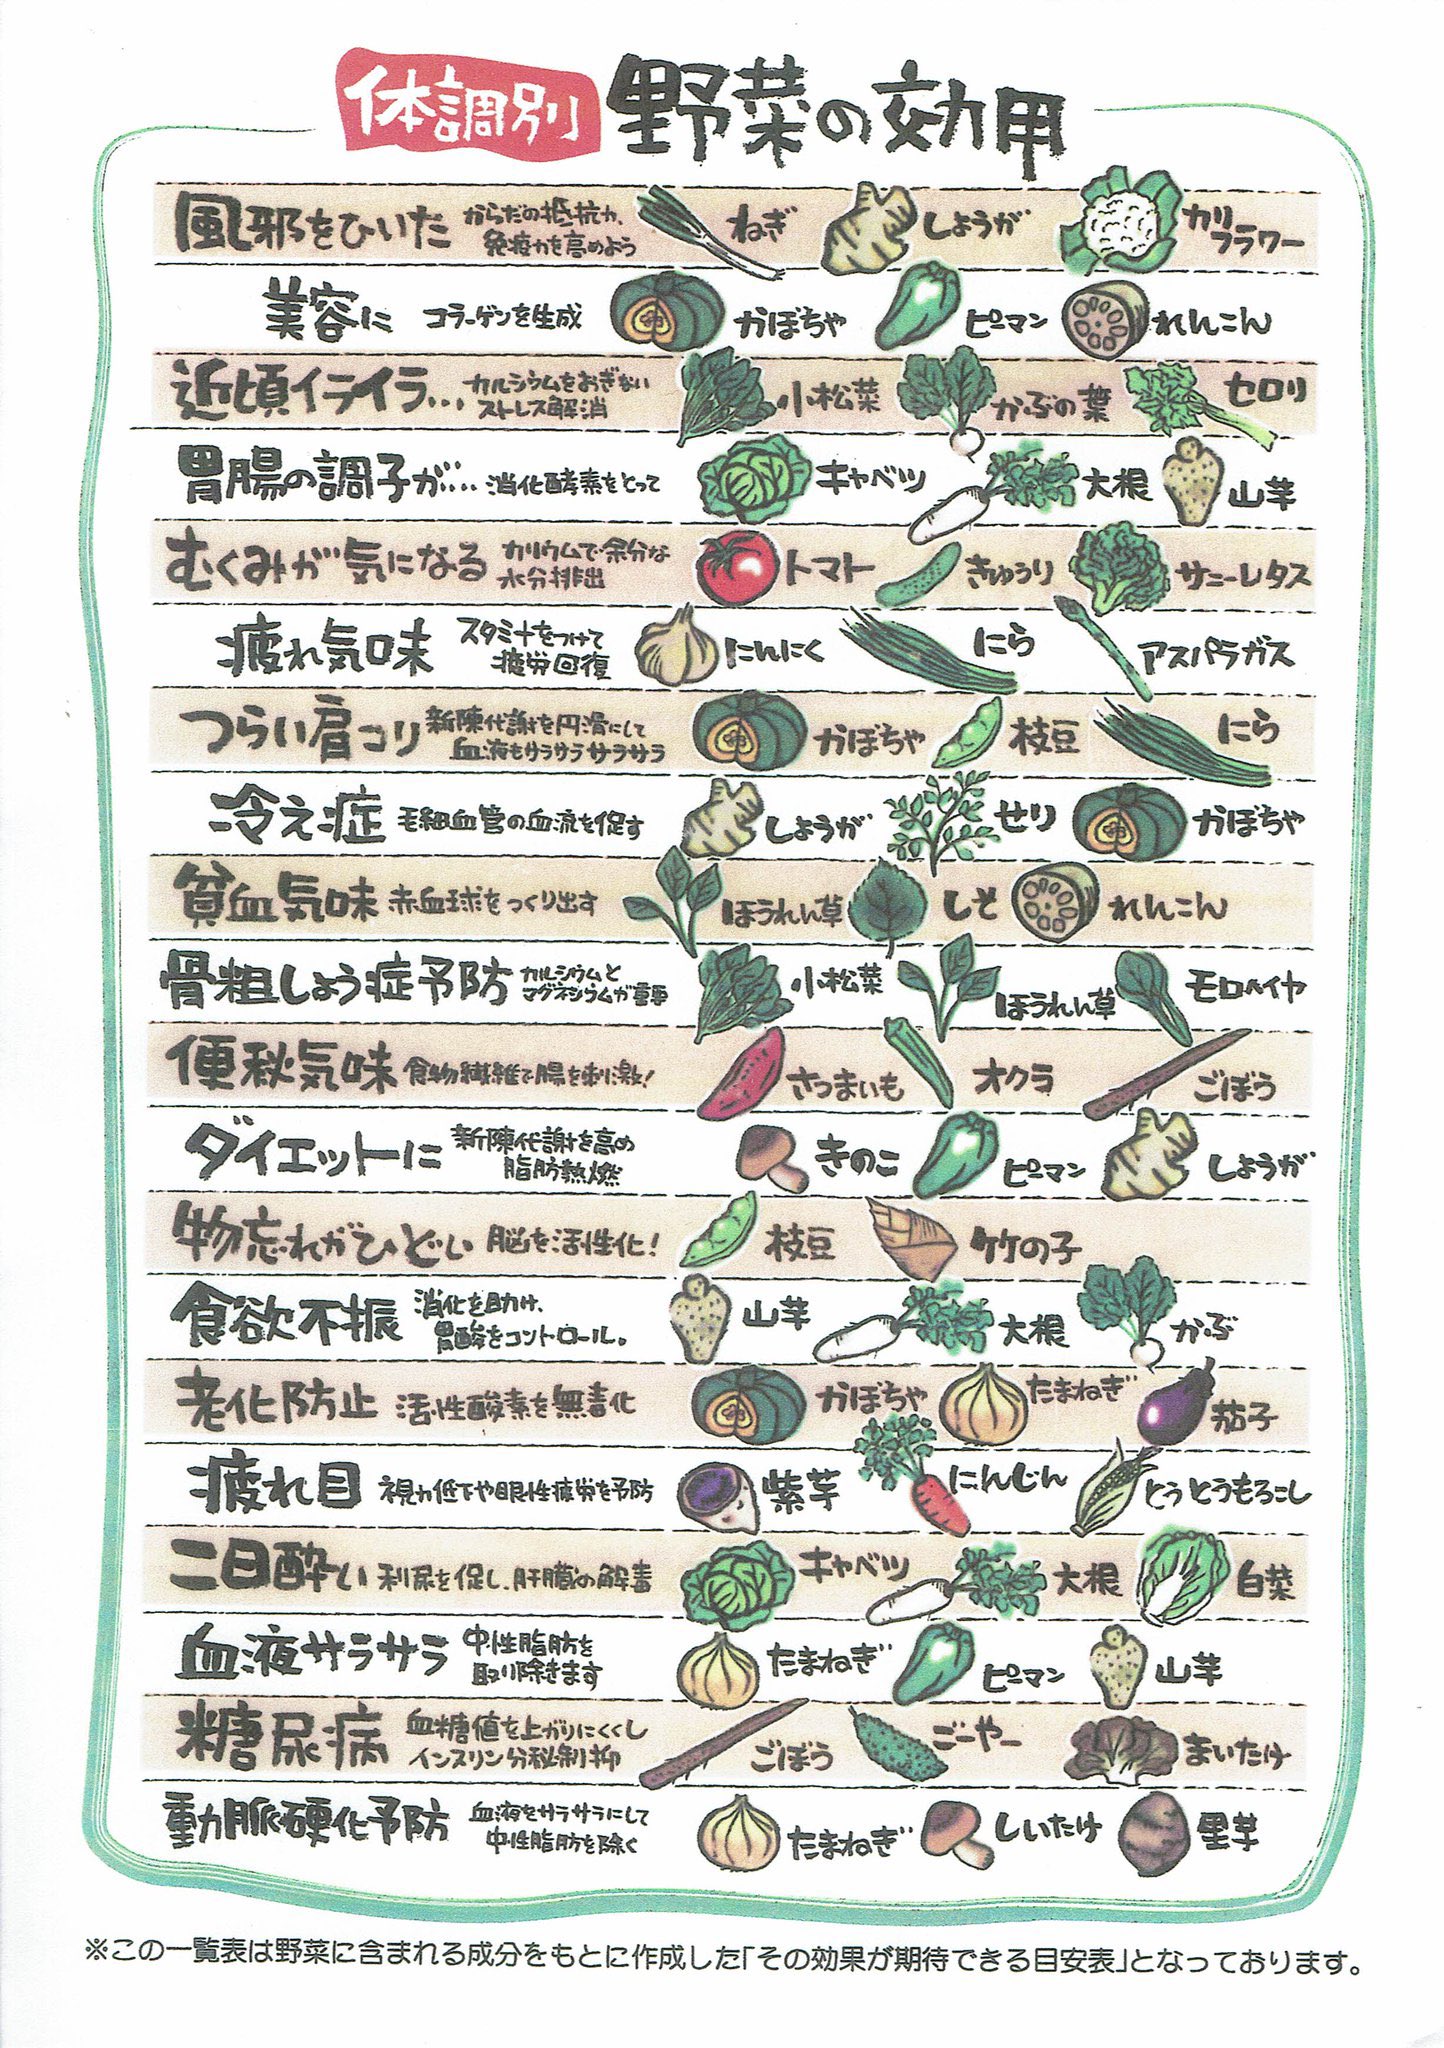 体調別 野菜の効用
風邪をひいた からだの抵抗力、 ねぎ しょうが カリ
免疫力を高めよう フラワー
美容に コラーゲンを生成 かぼちゃ ピーマン れんこん
近頃イライラ… カルシウムをおぎない 小松菜 かぶの葉 セロリ
ストレス解消
胃腸の調子が…. 消化酵素をとって キャベツ 大根 山芋
むくみが気になる カリウムで余分な トマト きゅうり サニーレタス
水分排出
疲れ気味 スタミナをつけて にんにく にら アスパラガス
疲労回復
つらい肩コリ 新陳代謝を円滑にして かぼちゃ 枝豆 にら
血液もサラサラサラサラ
冷え症 毛細血管の血流を促す しょうが せり かぼちゃ
貧血気味 赤血球をつくり出す ほうれん草 しそ れんこん
骨粗しょう症予防 カルシウムと 小松菜 ほうれん草 モロヘイヤ
マグネシウムが重要
便秘気味 食物繊維で腸を刺激! さつまいも オクラ ごぼう
ダイエットに 新陳代謝を高め きのこ ピーマン しょうが
脂肪熱燃
物忘れがひどい 脳を活性化! 枝豆 竹の子
食欲不振 消化を助け、 山芋 大根 かぶ
胃酸をコントロール。
老化防止 活性酸素を無毒化 かぼちゃ たまねぎ 茄子
疲れ目 視力低下や眼性疲労を予防 紫芋 にんじん とうとうもろこし
二日酔い 利尿を促し、肝臓の解毒 キャベツ 大根 白菜
血液サラサラ 中性脂肪を たまねぎ ピーマン 山芋
取り除きます
糖尿病 血糖値を上がりにくくし ごぼう ごーやー まいたけ
インスリン分秘制抑
動脈硬化予防 血液をサラサラにして たまねぎ しいたけ 里芋
中性脂肪を除く
※この一覧表は野菜に含まれる成分をもとに作成した「その効果が期待できる目安表」となっております。